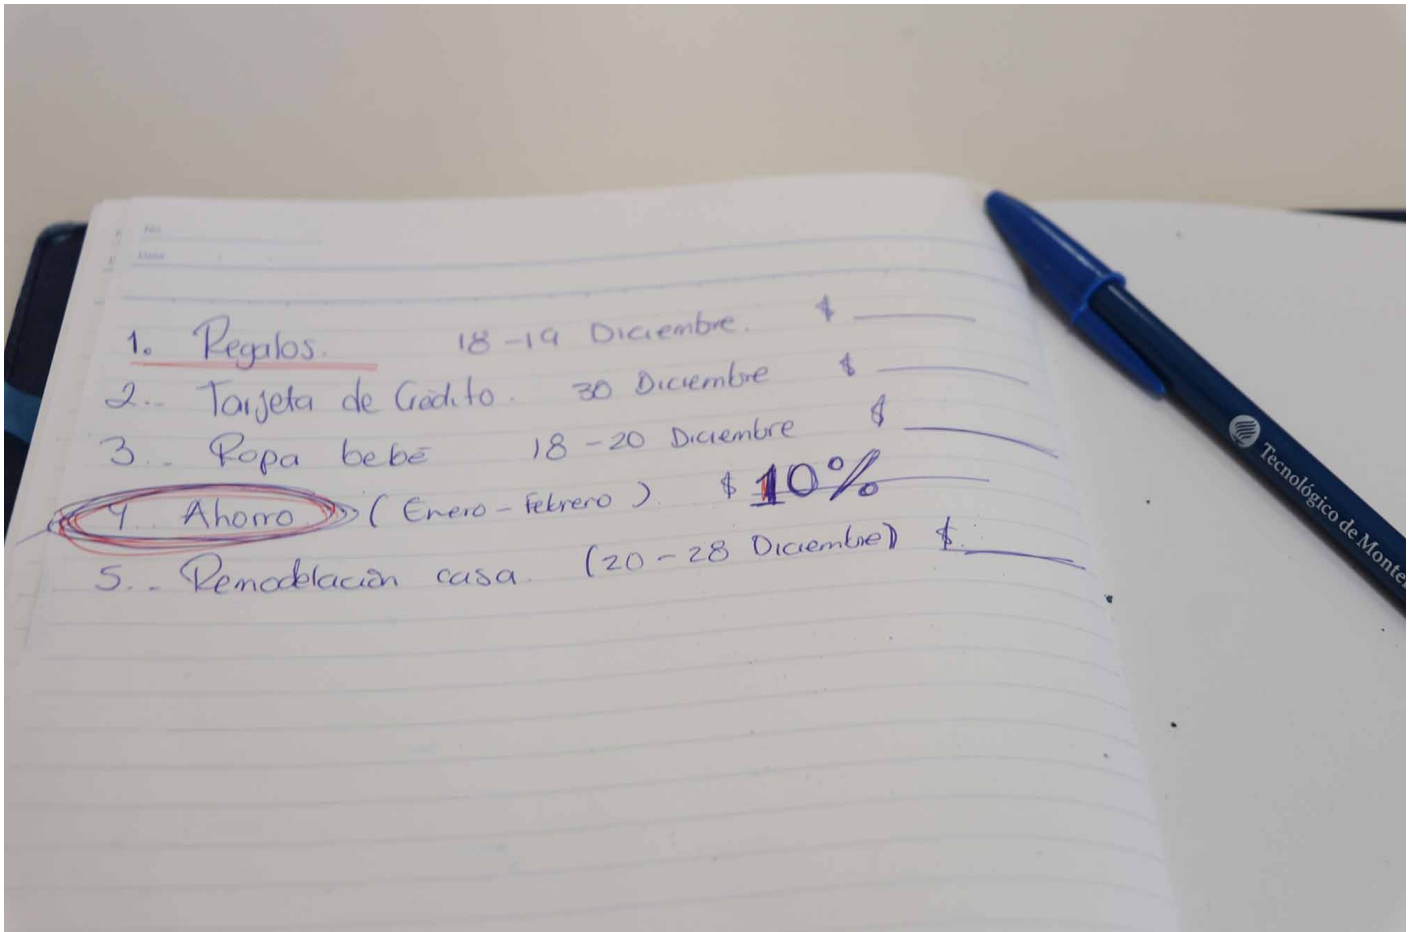 No.
Date
1. Regalos. 18-19 Diciembre. $ ______
2.- Tarjeta de Crédito. 30 Diciembre $ ______
3.- Ropa bebé 18-20 Diciembre $ ______
4 Ahorro (Enero-Febrero) $ 10%
5.- Remodelación casa. (20-28 Diciembre) $ ______
Tecnológico de Monter